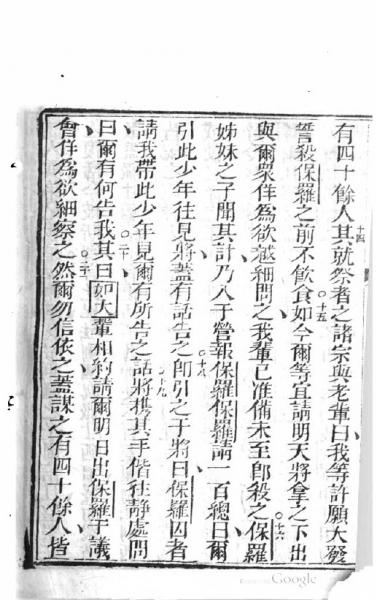 有四十餘人十四其就祭者之諸宗與老輩曰我等許願大發
誓殺保羅之前不飲食十五如今爾等宜請明天將拿之下出
與爾衆佯為欲越細問之我輩已准備未至即殺之十六保羅
姊妹之子聞其計乃入于營報保羅十七保羅請一百總曰爾
引此少年往見將蓋有話告之十八即引之于將曰保羅囚者
請我帶此少年見爾有所告之話十九將携其手偕往靜處問
曰爾有何告我二十其曰如大輩相約請爾明日出保羅于議
會佯為欲細察之二一然爾勿信依之蓋謀之有四十餘人皆
Google